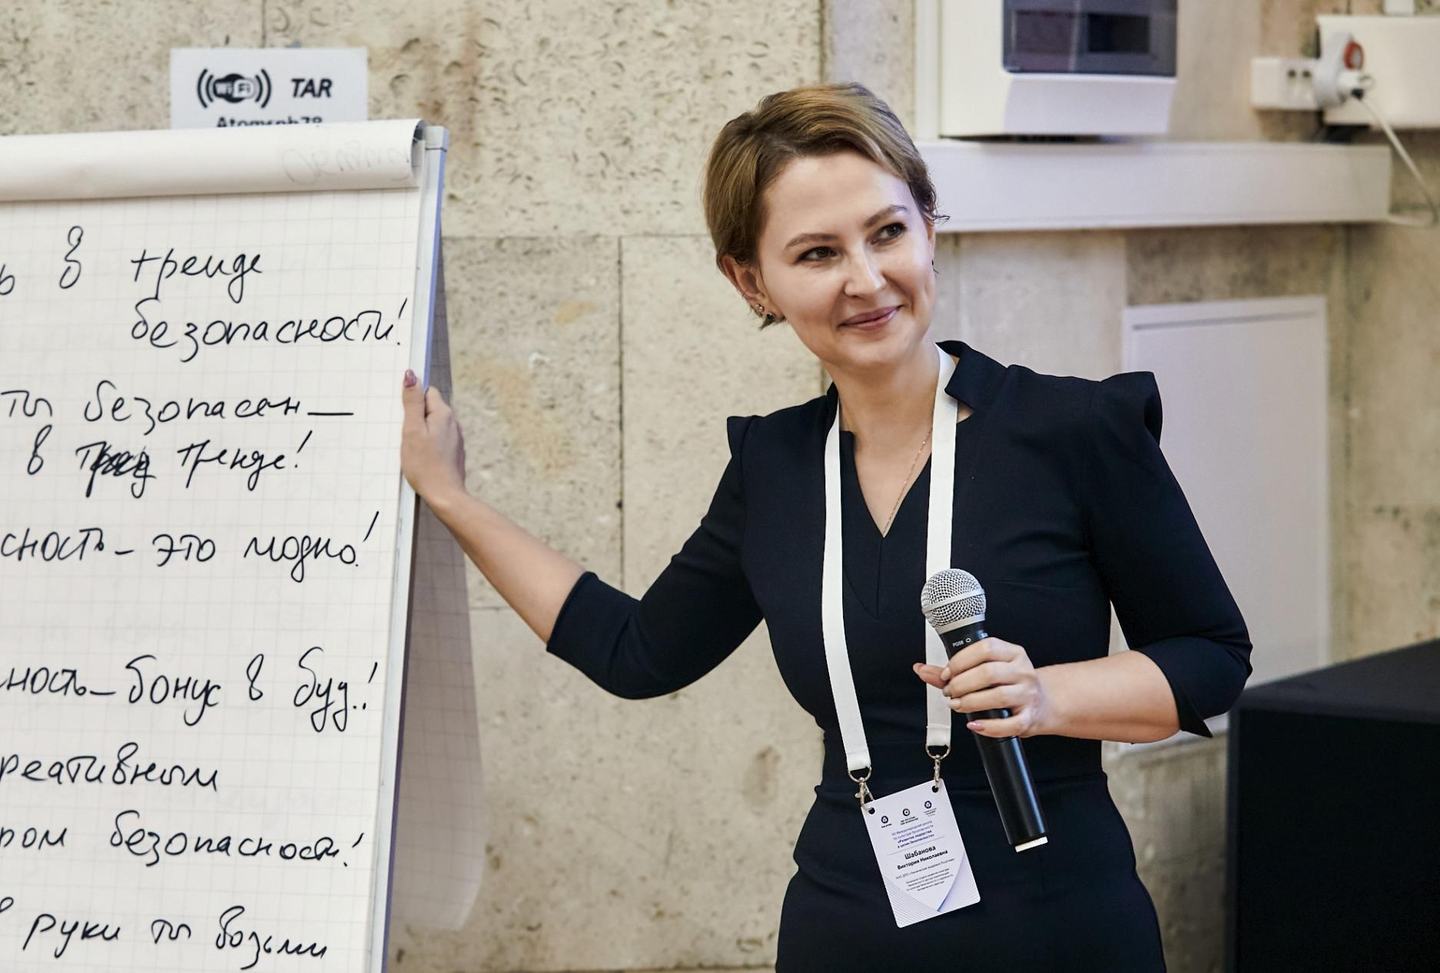 WiFi TAR
Atomspb78
ь в тренде
безопасности!
ты безопасен—
в тренде!
сность - это модно!
ность - бонус в буд.!
реативным
ром безопасности!
в руки ты возьми
Шабанова
Виктория Николаевна